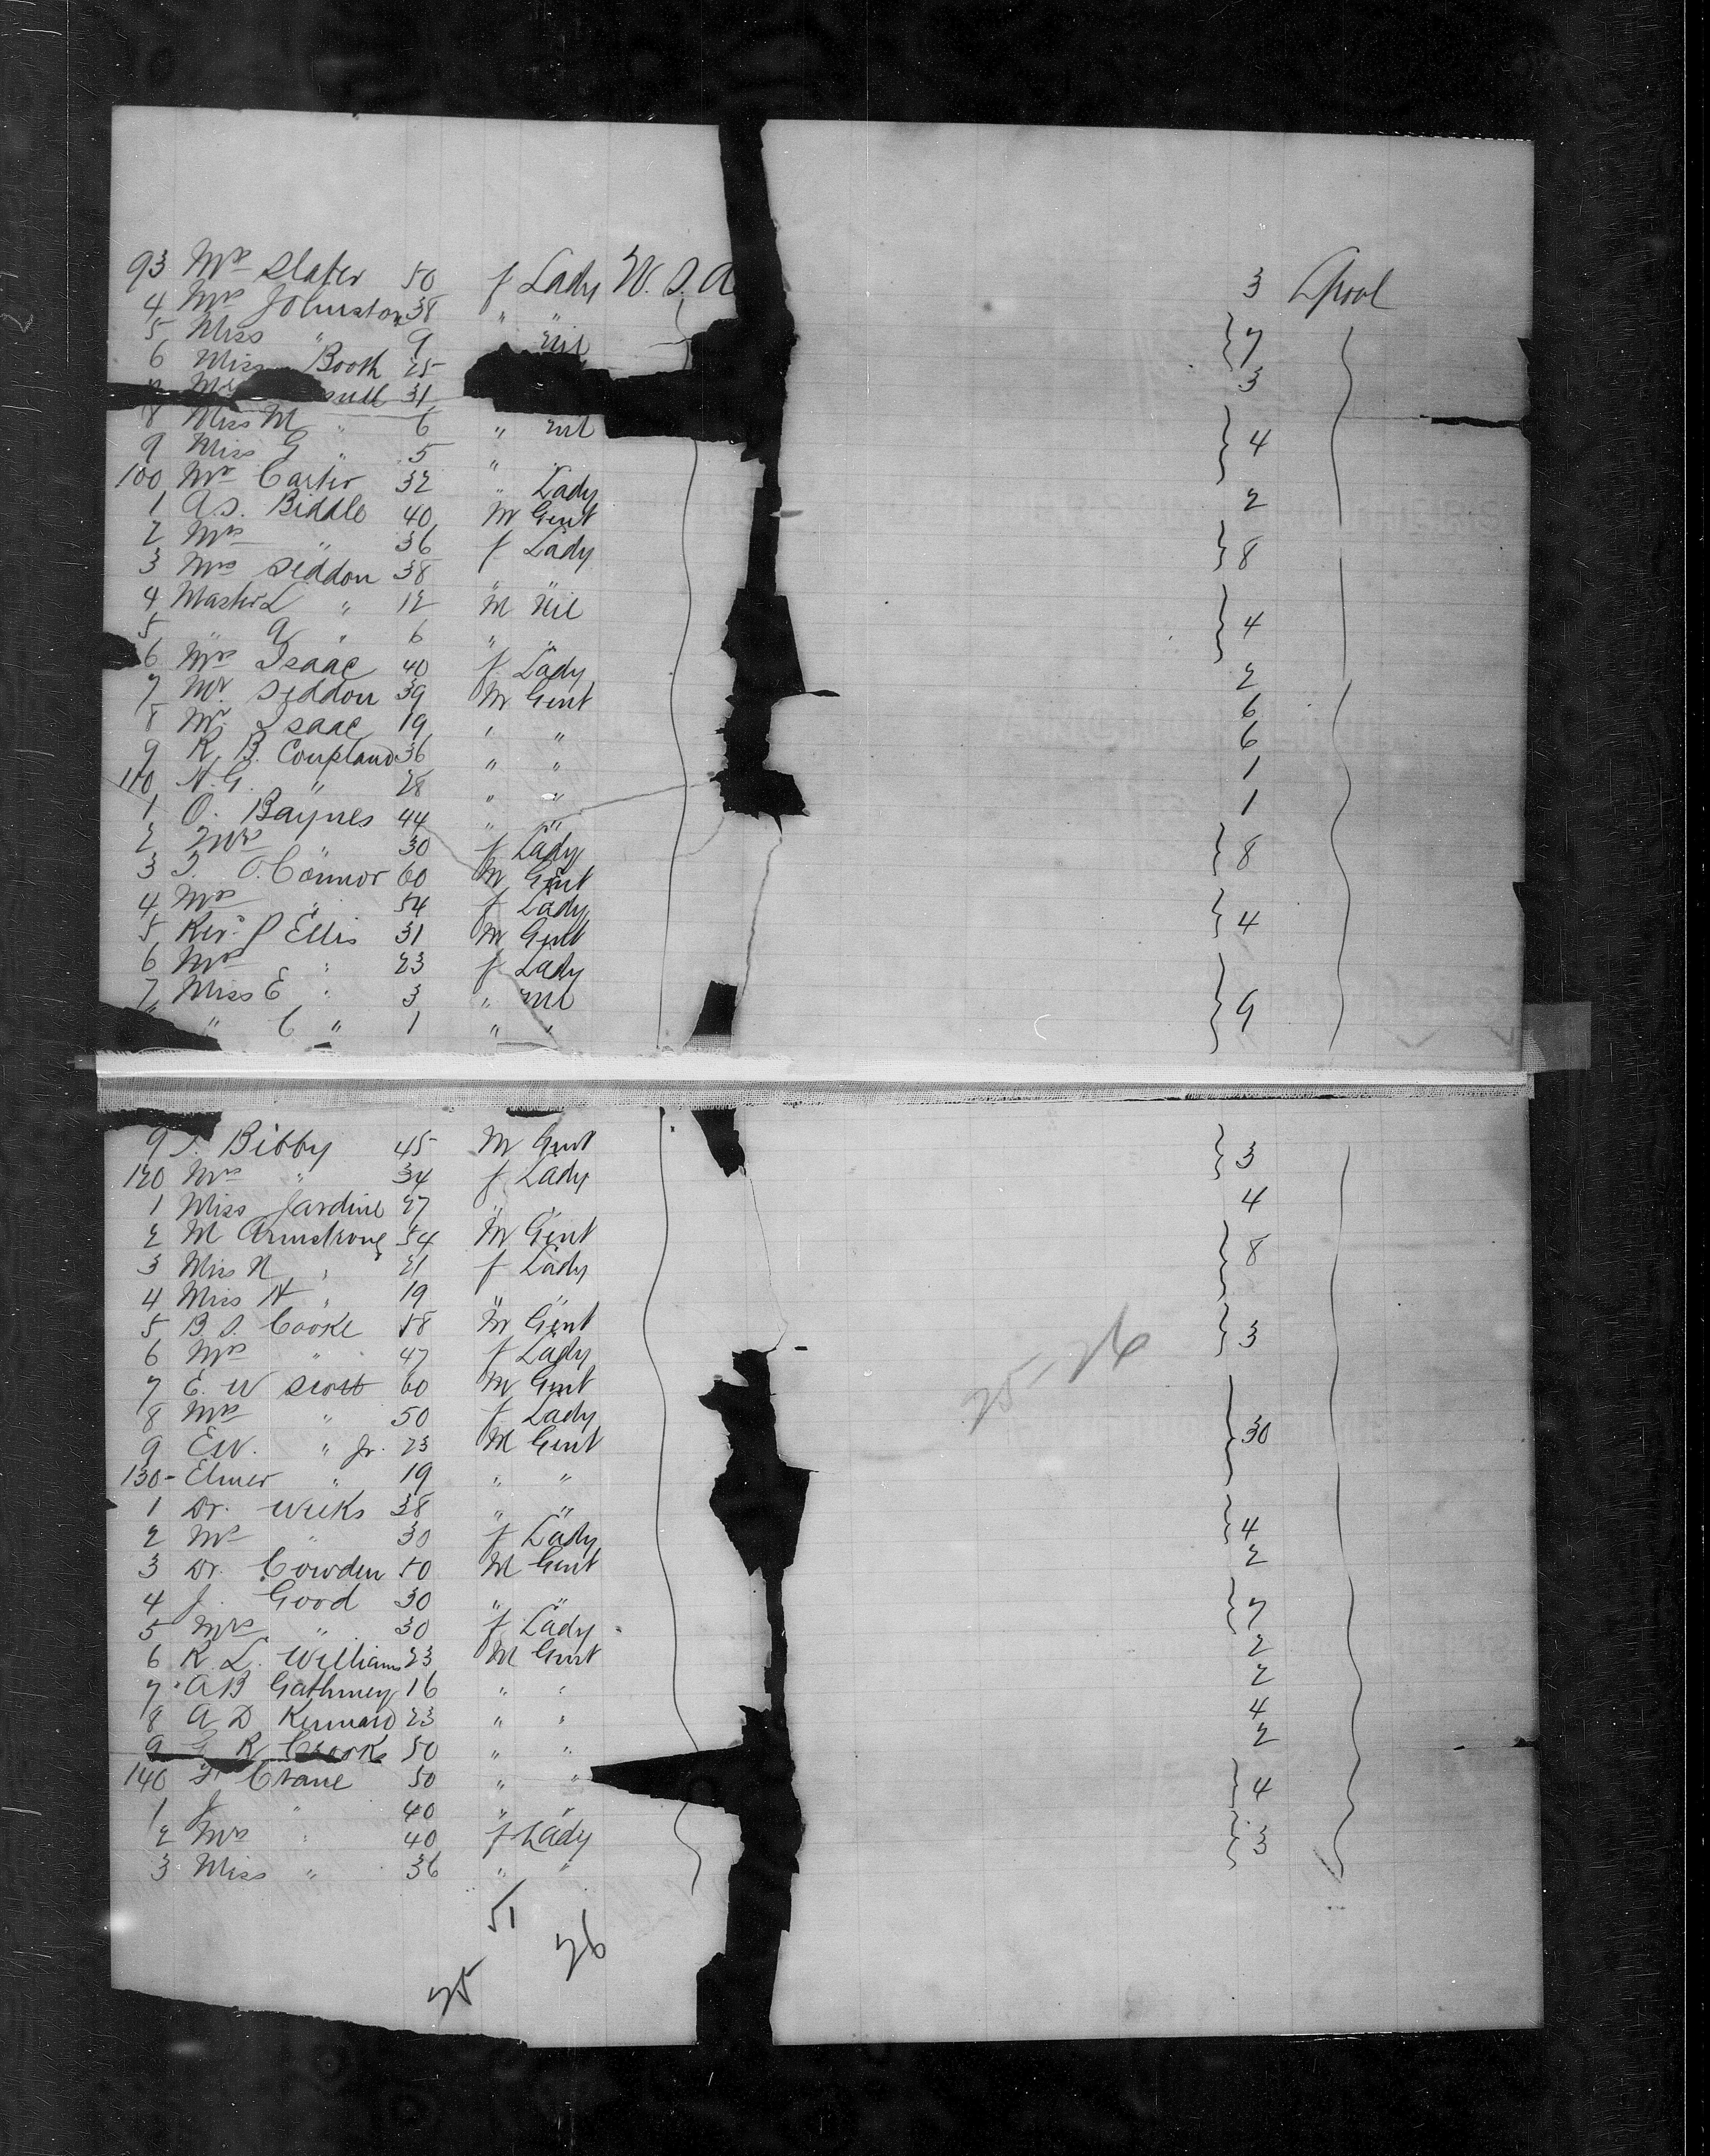 93 Mrs Slater 50 f Lady U.S.A 3 Lpool
4 Mrs Johnston 38 " "
5 Miss " 9 nil } 7
6 Miss Booth 25 3
7 31
8 Miss M " 6 " nil } 4
9 Miss G " 5 "
100 Mrs Carter 32 " Lady 2
1 A.S. Biddle 40 M Gent
2 Mrs " 36 f Lady } 8
3 Mrs Seddon 38 " "
4 Master L " 12 M Nil } 4
5 " A " 6 " "
6 Mrs Isaac 40 f Lady 2
7 Mr. Seddon 39 M Gent 6
8 Mr. Isaac 19 " " 6
9 R. B. Coupland 36 " " 1
110 H. G. " 28 " " 1
1 O. Baynes 44 " "
2 Mrs " 30 f Lady } 8
3 T. O'Connor 60 M Gent
4 Mrs " 54 f Lady } 4
5 Rev. P Ellis 31 M Gent
6 Mrs " 23 f Lady
7 Miss E " 3 " nil } 9
" C " 1 " "
9 J. Bibby 45 M Gent } 3
120 Mrs " 34 f Lady
1 Miss Jardine 27 " " 4
2 M Armstrong 54 M Gent
3 Miss N " 21 f Lady } 8
4 Miss H " 19 " "
5 B. S. Cooke 58 M Gent } 3
6 Mrs " 47 f Lady
7 E. W Scott 60 M Gent
8 Mrs " 50 f Lady
9 E.W. " Jr. 23 M Gent } 30
130 - Elmer " 19 " "
1 Dr. Weeks 38 " "
2 Mrs " 30 f Lady } 4
3 Dr. Cowden 50 M Gent 2
4 J. Good 30 " "
5 Mrs " 30 f Lady } 7
6 R. L. Williams 23 M Gent 2
7 A B Gathmey 16 " " 2
8 A D Kennard 23 " " 4
9 G R Crooks 50 " " 2
140 F. Crane 50 " " } 4
1 J " 40 " "
2 Mrs " 40 f Lady } 3
3 Miss " 36 " "
25-26
51
26
25